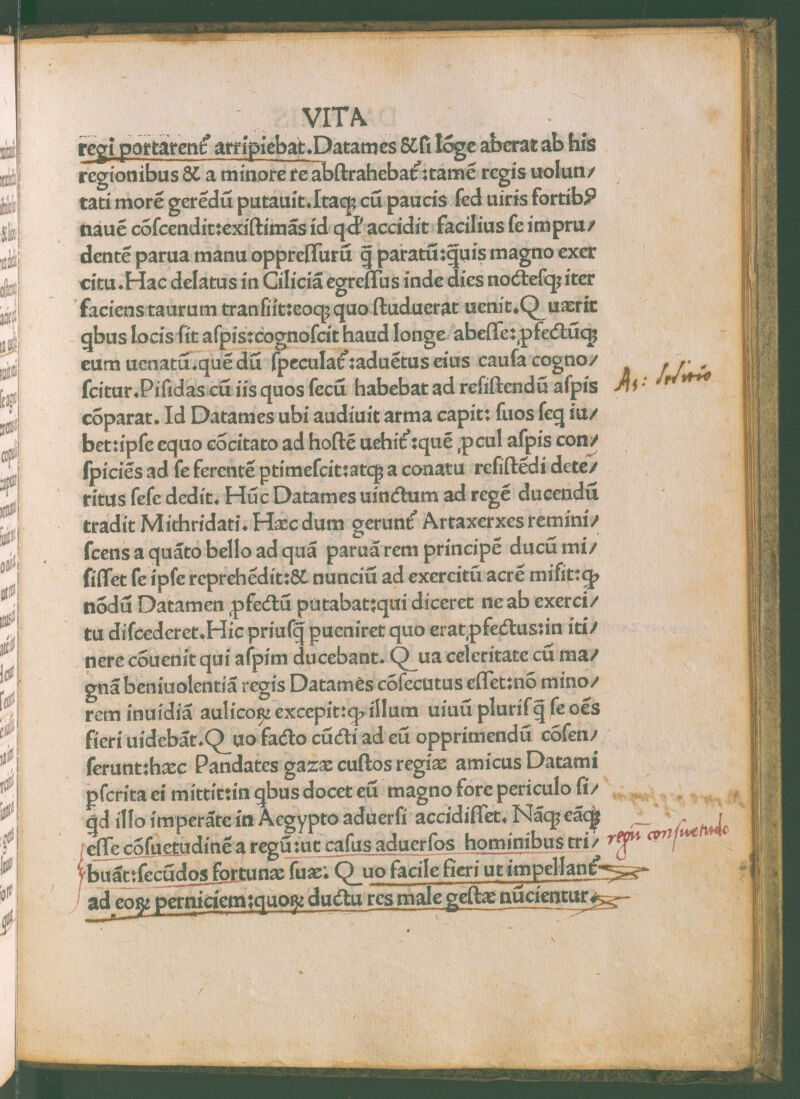 VITA
regi portarent᷑ arripiebat.Datames &ſi lōge aberat ab his
regionibus & a minore re abſtrahebat᷑:tamē regis uolun/
tati morē gerēdū putauit.Itaq; cū paucis ſed uiris fortibꝰ
nauē cōſcendit:exiſtimās id qd' accidit facilius ſe impru/
dentē parua manu oppreſſurū q̄ paratū:q̄uis magno exer
citu.Hac delatus in Ciliciā egreſſus inde dies nocteſq; iter
faciens taurum tranſiit:eoq; quo ſtuduerat uenit.Q uærit
qbus locis ſit aſpis:cognoſcit haud longe abeſſe:ꝓfectūq;
eum uenatū.quē dū ſpeculat᷑:aduētus eius cauſa cogno/
ſcitur.Piſidas cū iis quos ſecū habebat ad reſiſtendū aſpis
cōparat. Id Datames ubi audiuit arma capit: ſuos ſeq iu/
bet:ipſe equo cōcitato ad hoſtē uehit᷑:quē ꝓcul aſpis con/
ſpiciēs ad ſe ferentē ptimeſcit:atq; a conatu reſiſtēdi dete/
ritus ſeſe dedit. Hūc Datames uinctum ad regē ducendū
tradit Mithridati. Hæc dum gerunt᷑ Artaxerxes remini/
ſcens a quāto bello ad quā paruā rem principē ducū mi/
ſiſſet ſe ipſe reprehēdit:& nunciū ad exercitū acrē miſit:ꝙ
nōdū Datamen ꝓfectū putabat:qui diceret ne ab exerci/
tu diſcederet.Hic priuſq̄ pueniret quo erat ꝓfectus:in iti/
nere cōuenit qui aſpim ducebant. Q ua celeritate cū ma/
gnā beniuolentiā regis Datames cōſecutus eſſet:nō mino/
rem inuidiā aulicoꝝ excepit:ꝙ illum uiuū pluriſq̄ ſe oēs
fieri uidebāt.Q uo facto cūcti ad eū opprimendū cōſen/
ſerunt:hæc Pandates gazæ cuſtos regiæ amicus Datami
pſcrita ei mittit:in qbus docet eū magno fore periculo ſi/
qd illo imperāte in Aegypto aduerſi accidiſſet. Nāq; eāq;
eſſe cōſuetudinē a regū:ut caſus aduerſos hominibus tri/
buāt:ſecūdos fortunæ ſuæ. Q uo facile fieri ut impellant᷑
ad eoꝝ perniciem:quoꝝ ductu res male geſtæ nūcientur.
regū consuetudo